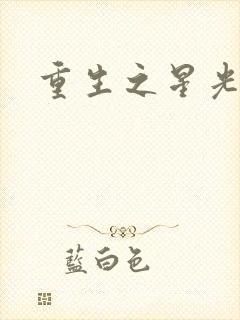 重生之星光
藍白色